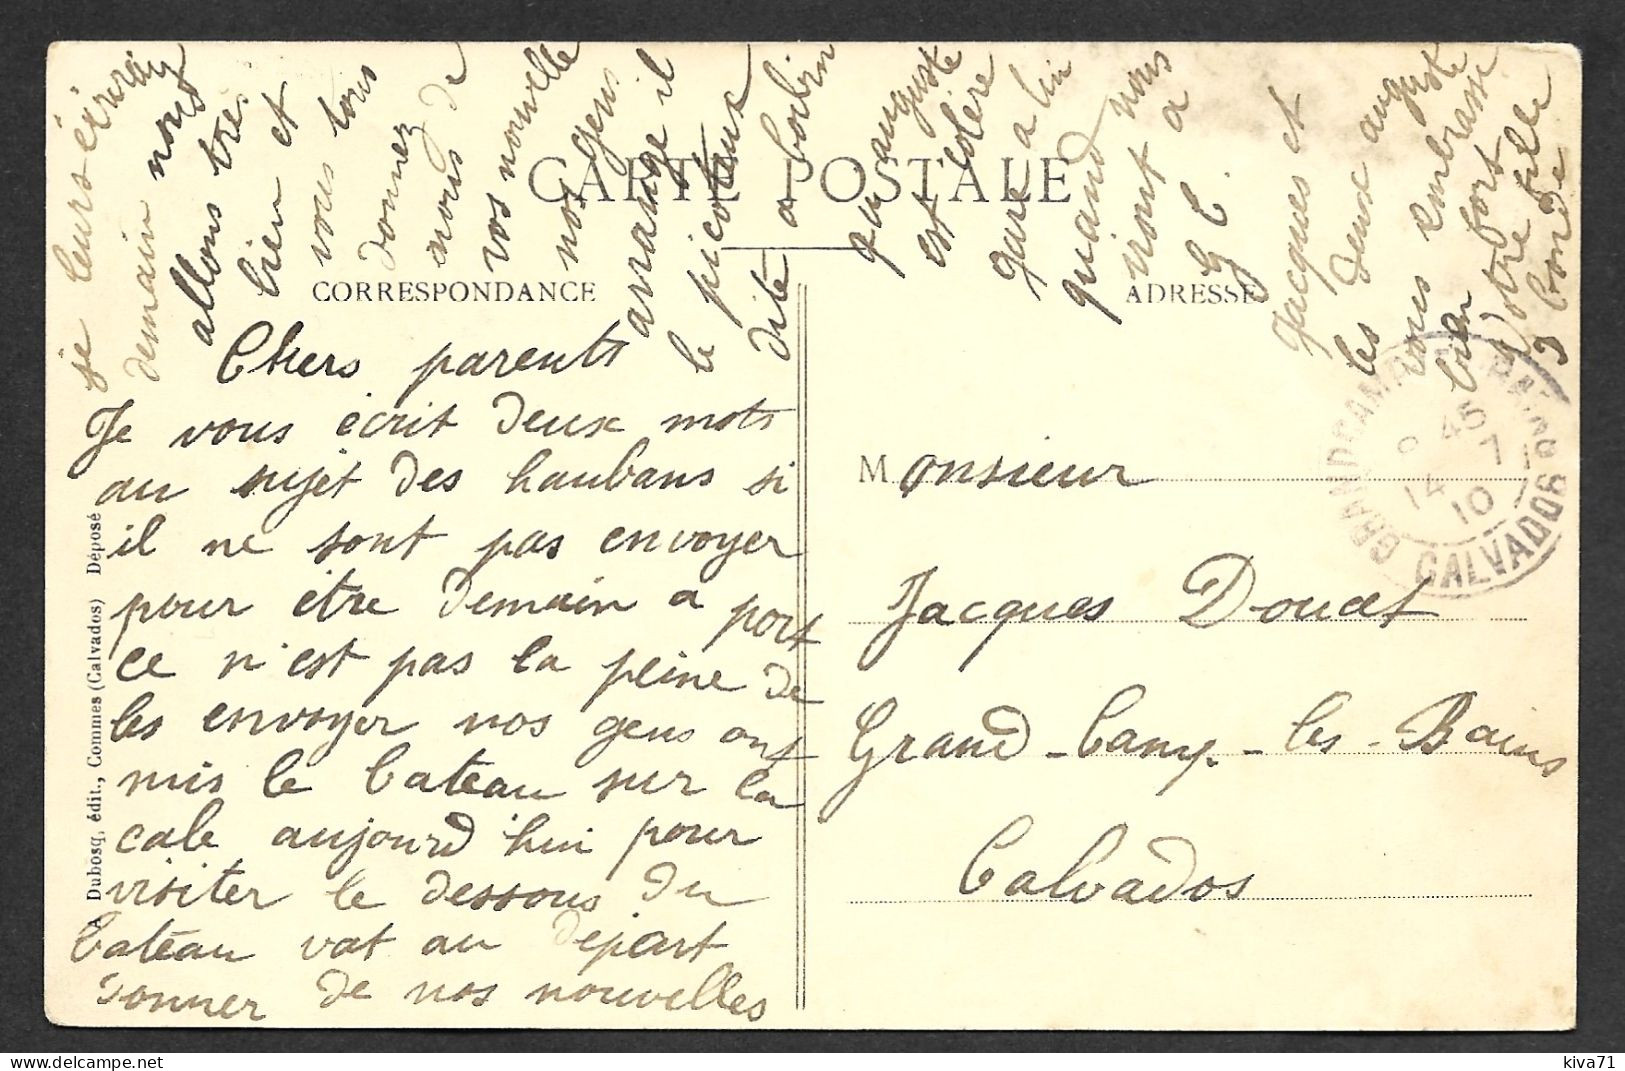 CARTE POSTALE
CORRESPONDANCE
ADRESSE
Chers parents
Je vous écrit deux mots
au sujet des haubans si
il ne sont pas envoyer
pour être demain a port
ce n'est pas la peine de
les envoyer nos gens ont
mis le bateau sur la
cale aujourd'hui pour
visiter le dessous du
bateau vat au départ
donner de nos nouvelles
je leurs écrirai
demain nous
allons tres
bien et
vous tous
donnez
nous de
vos nouvelle
nos gens
arrange il
le picotaux
dite a bobin
qu auguste
est colère
gare a lui
quand nous
iront a
G C
Jacques et
les deux auguste
vous embrasse
bien fort
Votre fille
A Dubosq, édit., Commes (Calvados) Déposé
Monsieur
Jacques Doucet
Grand-Camp-les-Bains
Calvados
8 45
14 7
10
CALVADOS
kiva71